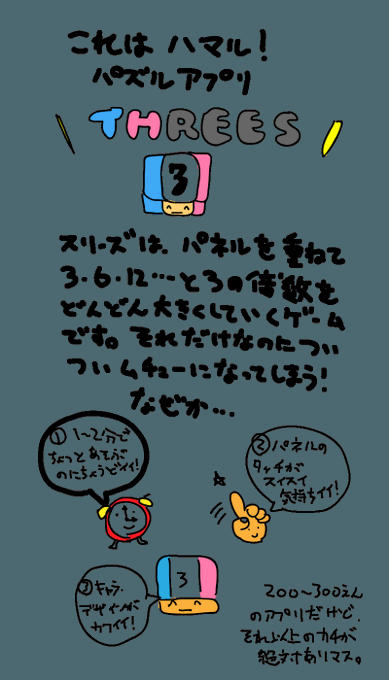 これは ハマル!
パズルアプリ
THREES
3
スリーズは、パネルを重ねて
3・6・12…と3の倍数を
どんどん大きくしていくゲーム
です。それだけなのについ
ついムチューになってしまう!
なぜか…
① 1〜2分で
ちょっとあそぶ
のにちょうどイイ!
② パネルの
タッチが
スイスイ
気持ちイイ!
③ キャラ・
デザインが
カワイイ!
3
200〜300えん
のアプリだけど、
それ以上のカチが
絶対ありマス。